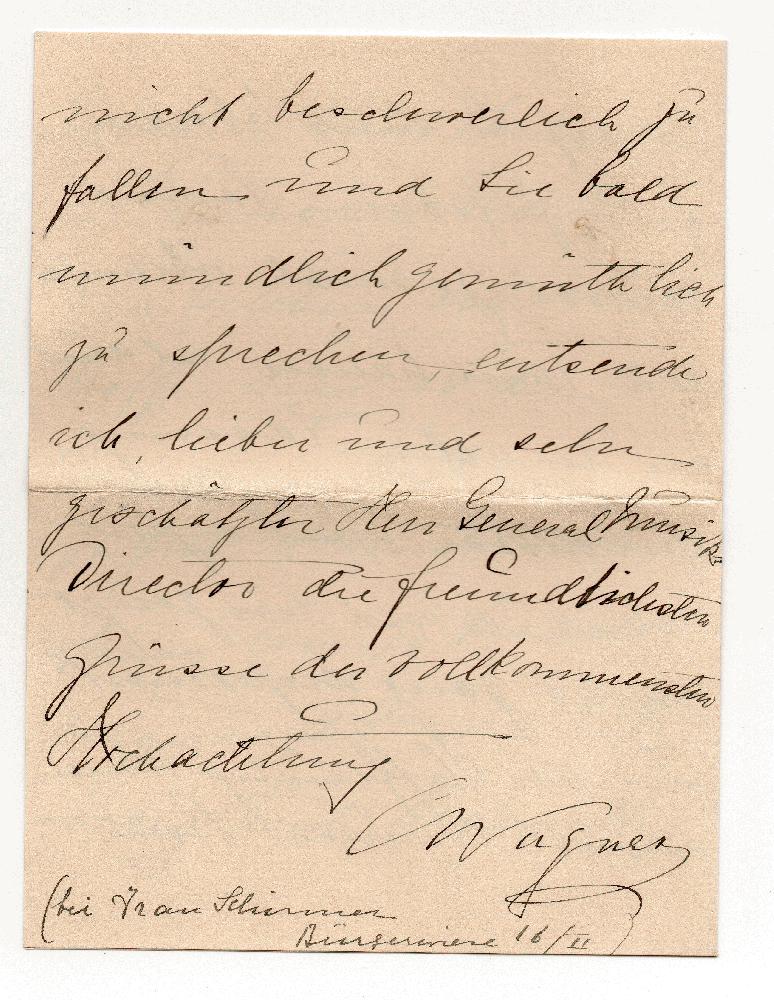 nicht beschwerlich zu
fallen und Sie bald
mündlich gemüthlich
zu sprechen, entsende
ich, lieber und sehr
geschätzter Herr General Musik
Director die freundlichsten
Grüsse der vollkommensten
Hochachtung
CWagner
(bei Frau Schirmer
Bürgerwiese 16/II)